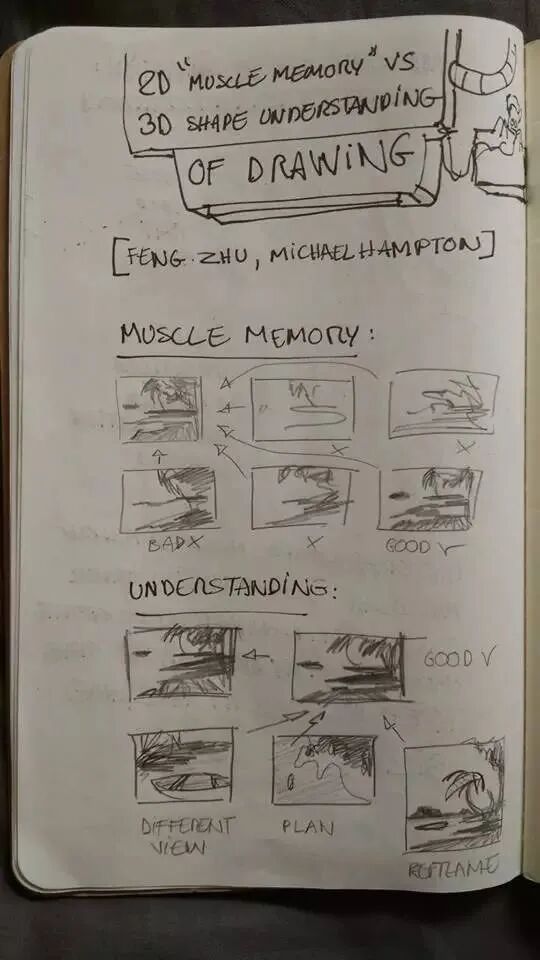 2D "MUSCLE MEMORY" VS
3D SHAPE UNDERSTANDING
OF DRAWING
[FENG ZHU, MICHAEL HAMPTON]
MUSCLE MEMORY:
X X
BAD X X GOOD V
UNDERSTANDING:
GOOD V
DIFFERENT
VIEW
PLAN
REFRAME